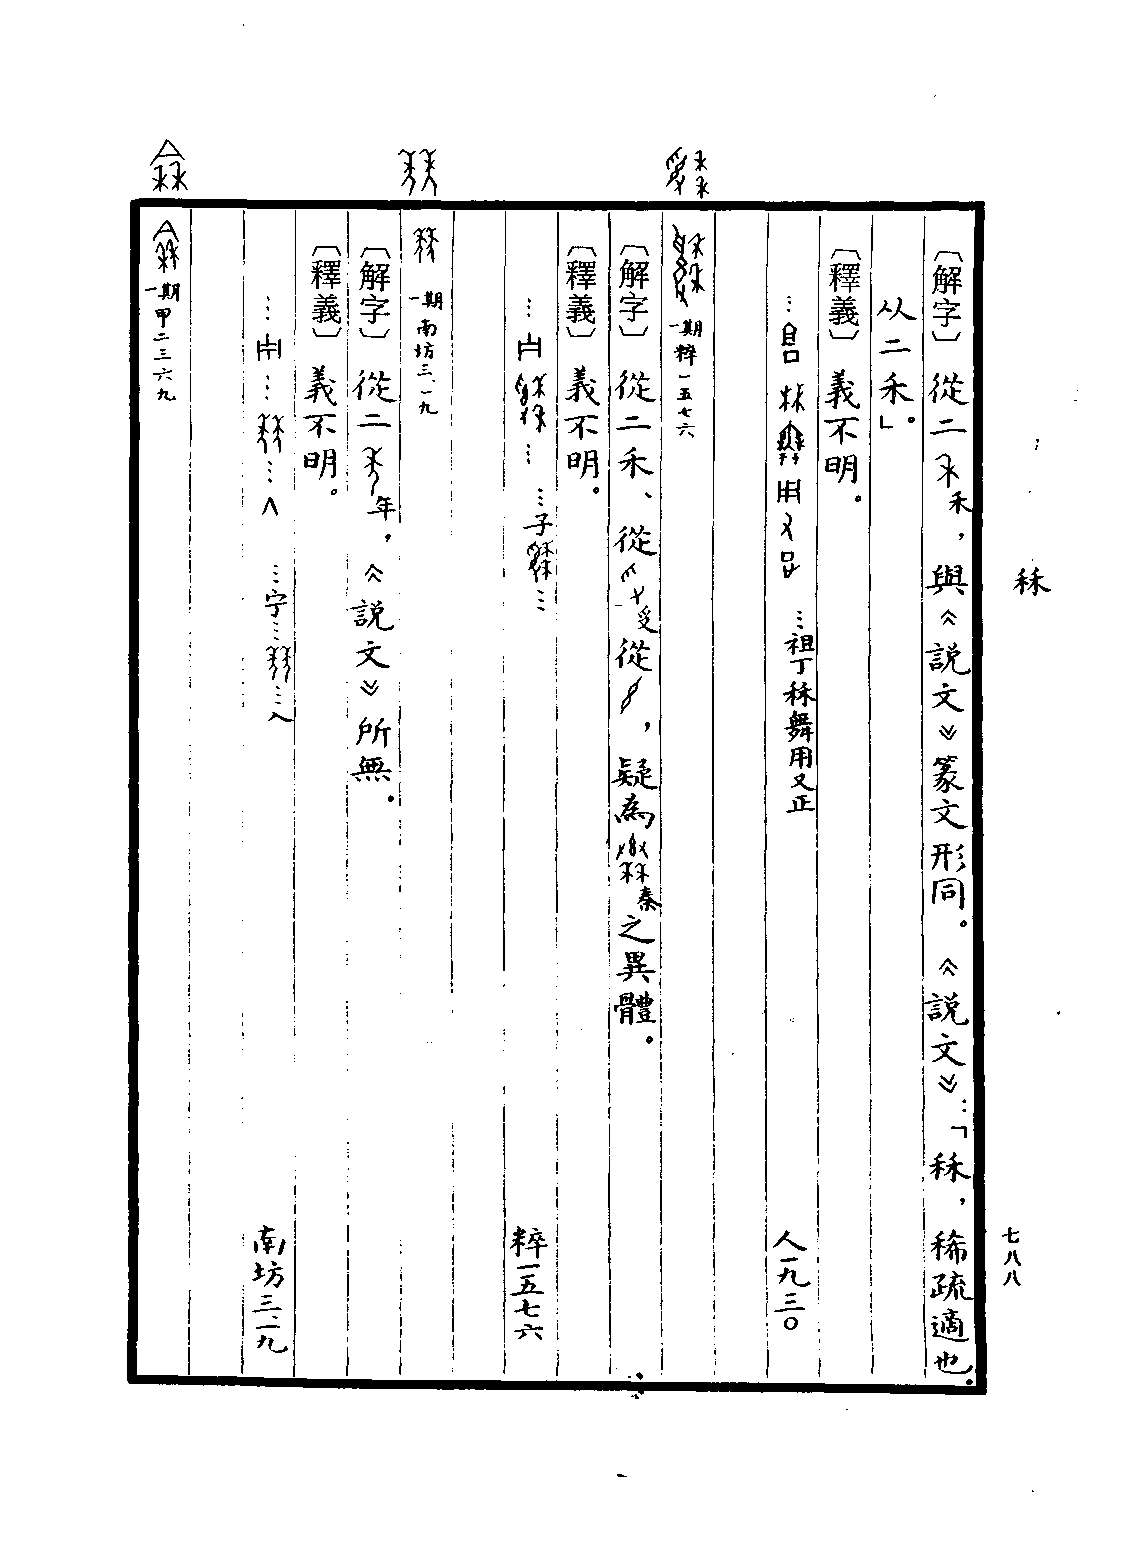 秝
七八八
〔解字〕從二禾，與《說文》篆文形同。《說文》：「秝，稀疏適也。
从二禾。」
〔釋義〕義不明。
…祖丁秝舞用又正
人一九三〇
一期 粹一五七六
〔解字〕從二禾、從受從，疑為秦之異體。
〔釋義〕義不明。
…子…
粹一五七六
一期 南坊三.一九
〔解字〕從二年，《說文》所無。
〔釋義〕義不明。
…宁……入
南坊三.一九
一期 甲二三六九